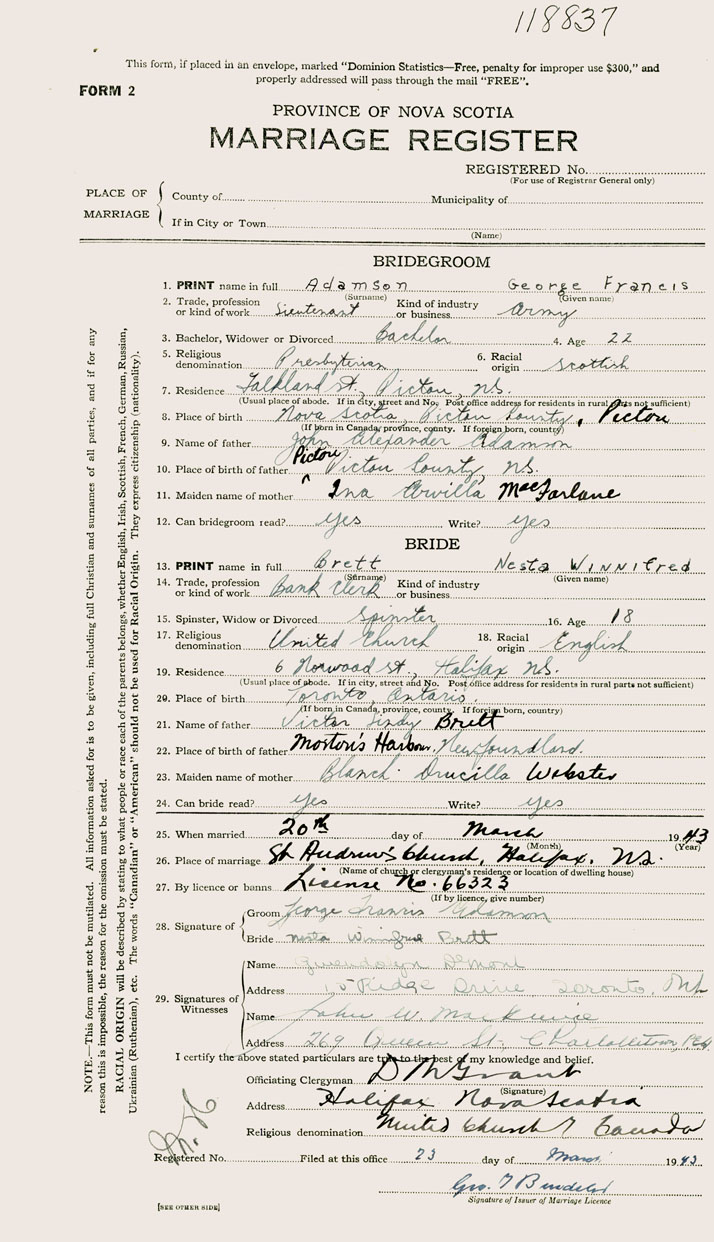 118837
This form, if placed in an envelope, marked "Dominion Statistics—Free, penalty for improper use $300," and
properly addressed will pass through the mail "FREE".
FORM 2
PROVINCE OF NOVA SCOTIA
MARRIAGE REGISTER
REGISTERED No.
(For use of Registrar General only)
PLACE OF MARRIAGE
County of Municipality of
If in City or Town
(Name)
BRIDEGROOM
1. PRINT name in full Adamson George Francis
(Surname) (Given name)
2. Trade, profession or kind of work Lieutenant Kind of industry or business Army
3. Bachelor, Widower or Divorced Bachelor 4. Age 22
5. Religious denomination Presbyterian 6. Racial origin Scottish
7. Residence Falkland st., Pictou, NS.
(Usual place of abode. If in city, street and No. Post office address for residents in rural parts not sufficient)
8. Place of birth Nova Scotia, Pictou County, Pictou
(If born in Canada, province, county. If foreign born, country)
9. Name of father John Alexander Adamson
10. Place of birth of father Pictou Pictou County, NS.
11. Maiden name of mother Ina Arvilla MacFarlane
12. Can bridegroom read? yes Write? yes
BRIDE
13. PRINT name in full Brett Nesta Winnifred
(Surname) (Given name)
14. Trade, profession or kind of work Bank Clerk Kind of industry or business
15. Spinster, Widow or Divorced Spinster 16. Age 18
17. Religious denomination United Church 18. Racial origin English
19. Residence 6 Norwood st., Halifax NS.
(Usual place of abode. If in city, street and No. Post office address for residents in rural parts not sufficient)
20. Place of birth Toronto, Ontario
(If born in Canada, province, county. If foreign born, country)
21. Name of father Victor Brett
22. Place of birth of father Morton's Harbour, Newfoundland.
23. Maiden name of mother Blanch Drucilla Webster
24. Can bride read? yes Write? yes
25. When married 20th day of March 1943
(Month) (Year)
26. Place of marriage St Andrew's Church, Halifax, NS.
(Name of church or clergyman's residence or location of dwelling house)
27. By licence or banns License No. 66323
(If by licence, give number)
28. Signature of
Groom George Francis Adamson
Bride Nesta Winifred Brett
29. Signatures of Witnesses
Name Gwendolyn DeMont
Address 15 Ridge Drive Toronto, Ont
Name John W. MacKenzie
Address 269 Queen St, Charlottetown, P.E.I.
I certify the above stated particulars are true to the best of my knowledge and belief.
Officiating Clergyman D M Grant
(Signature)
Address Halifax Nova Scotia
Religious denomination United Church of Canada
Registered No. Filed at this office 23 day of March 1943
Geo. T
Signature of Issuer of Marriage Licence
[SEE OTHER SIDE]
NOTE.—This form must not be mutilated. All information asked for is to be given, including full Christian and surnames of all parties, and if for any
reason this is impossible, the reason for the omission must be stated.
RACIAL ORIGIN will be described by stating to what people or race each of the parents belongs, whether English, Irish, Scottish, French, German, Russian,
Ukrainian (Ruthenian), etc. The words "Canadian" or "American" should not be used for Racial Origin. They express citizenship (nationality).